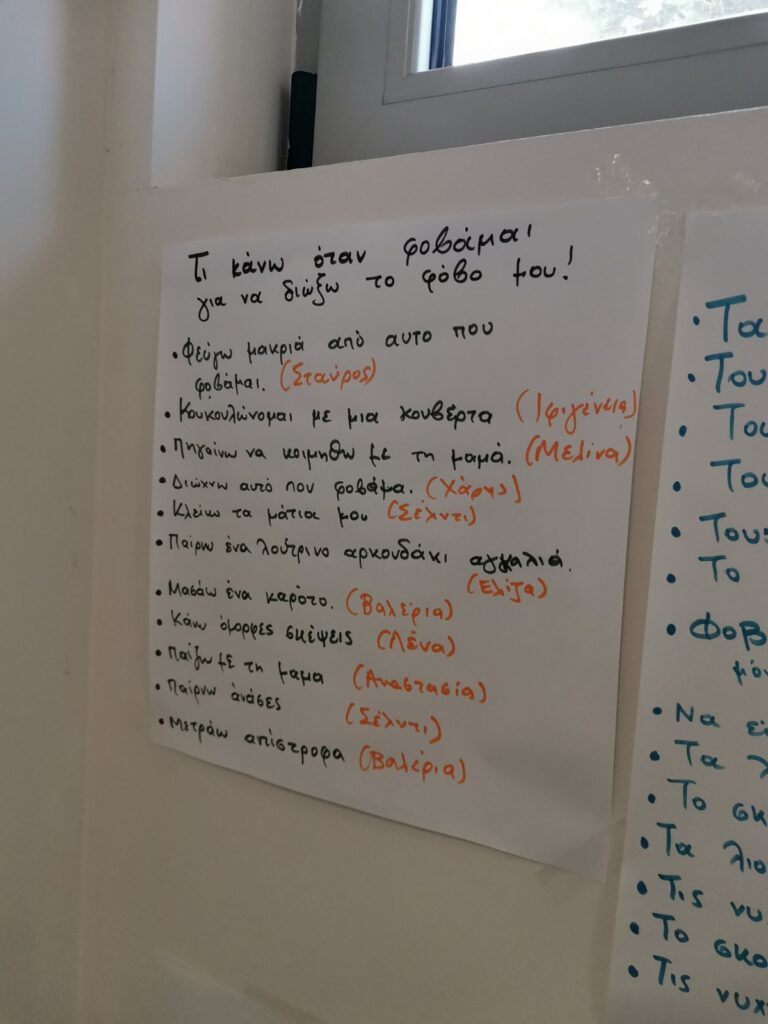 Τι κάνω όταν φοβάμαι
για να διώξω το φόβο μου!
• Φεύγω μακριά από αυτο που
φοβάμαι. (Σταύρος)
• Κουκουλώνομαι με μια κουβέρτα (Ιφιγένεια)
• Πηγαίνω να κοιμηθω με τη μαμά. (Μελίνα)
• Διώχνω αυτό που φοβάμα. (Χάρης)
• Κλείνω τα μάτια μου (Σέλντι)
• Παίρω ένα λούτρινο αρκουδάκι αγκαλιά.
(Ελίζα)
• Μασάω ένα καρότο. (Βαλέρια)
• Κάνω όμορφες σκέψεις (Λένα)
• Παίζω με τη μαμα (Αναστασία)
• Παίρνω ανάσες (Σέλντι)
• Μετράω απίστροφα (Βαλέρια)
• Τα
• Του
• Του
• Του
• Τους
• Το
• Φοβ
μόν
• Να εί
• Τα λ
• Το σκ
• Τα λιο
• Τις νυ
• Το σκο
• Τις νυχ